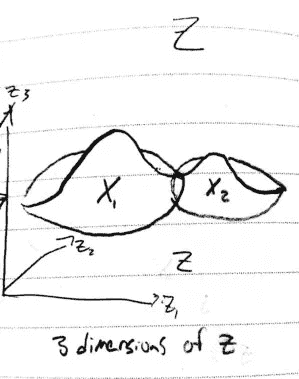 Z
Z₃
X₁
X₂
Z₂
Z
Z₁
3 dimensions of Z